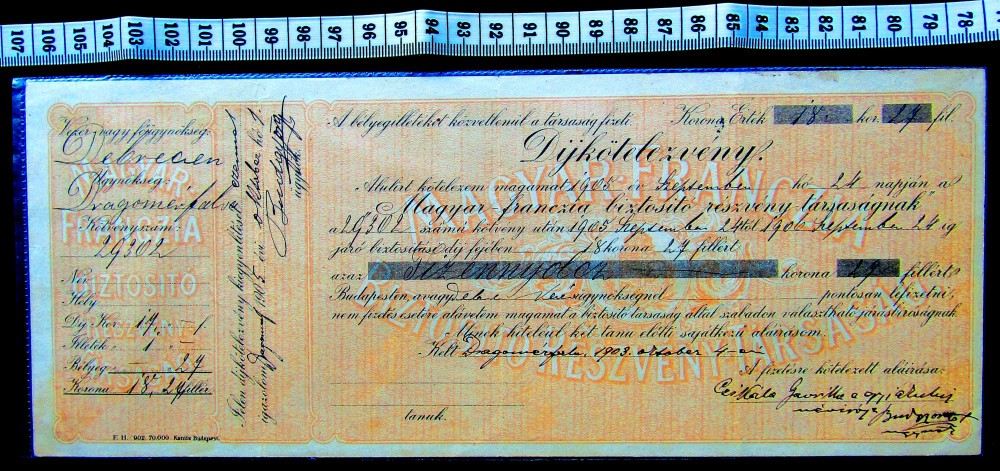 107 106 105 104 103 102 101 100 99 98 97 96 95 94 93 92 91 90 89 88 87 86 85 84 83 82 81 80 79 78 77
Vezér vagy főügynökség:
Debreczen
Ügynökség:
Dragomérfalva
Kötvényszám:
29302
Név
Hely
Díj Kor. 17
Illeték „ 1
Bélyeg „ 27
Korona 18, 27 fillér
F. H. 902. 70.000. Kanitz Budapest.
Jelen díjkötelezvény kiegyenlítését ezennel
igazolom 1905 évi október hó 1.
ügynök
A bélyegilletéket közvetlenül a társaság fizeti.
Korona Érték 18 kor. 27 fil.
Díjkötelezvény.
Alulírt kötelezem magamat 1905 év Szeptember hó 24 napján a
Magyar-franczia biztosító részvény társaságnak
a 29302 számú kötvény után 1905 Szeptember 24től 1906 Szeptember 24 ig
járó biztosítási díj fejében 18 korona 27 fillért
azaz Tizennyolcz Korona 27 fillért
Budapesten, avagy ügynökségnél pontosan lefizetni,
nem fizetés esetére alávetem magamat a biztosító társaság által szabadon választható járásbíróságnak.
Minek hiteléül két tanú előtti sajátkezű aláírásom.
Kelt Dragomérfalva, 1903. október 4-én
A fizetésre kötelezett aláírása:
Gavrilla
névírója
tanuk.
MAGYAR-FRANCZIA
BIZTOSÍTÓ RÉSZVÉNYTÁRSASÁG
MAGYAR
FRANCZIA
BIZTOSÍTÓ